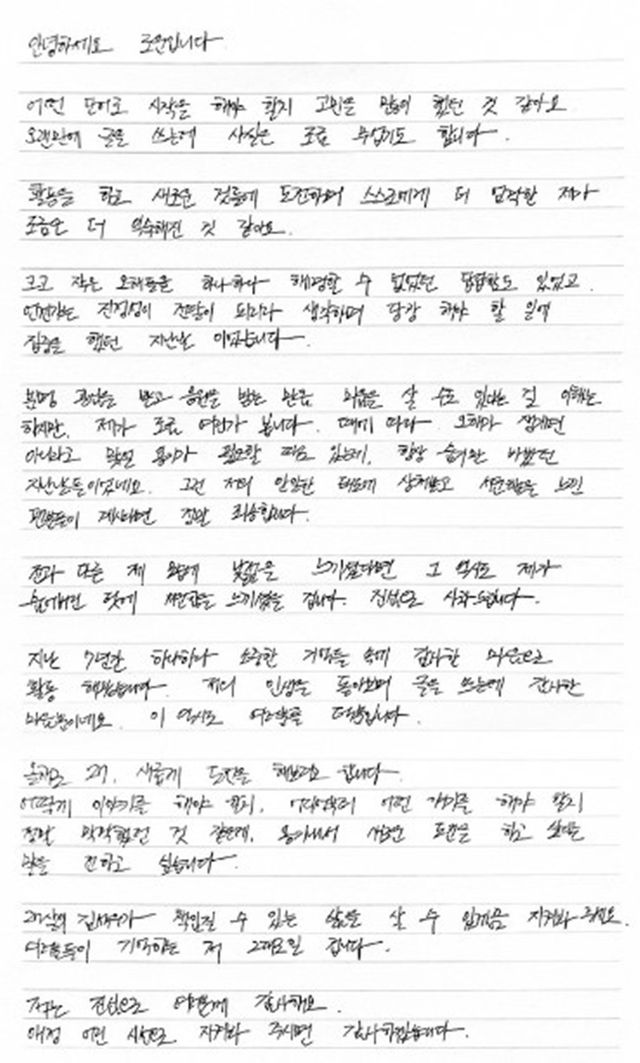 안녕하세요 로운입니다.
어떤 단어로 시작을 해야 할지 고민을 많이 했던 것 같아요
오랜만에 글을 쓰는데 사실은 조금 무섭기도 합니다.
활동을 하고 새로운 것들에 도전하며 스스로에게 더 엄격한 제가
조금은 더 익숙해진 것 같아요.
크고 작은 오해들을 하나하나 해명할 수 없었던 답답함도 있었고.
언젠가는 진정성이 전달이 되리라 생각하며 당장 해야 할 일에
집중을 했던 지난날 이었습니다.
분명 관심을 받고 응원을 받는 만큼 미움을 살 수도 있다는 걸 이해는
하지만, 제가 조금 여린가 봅니다. 때에 따라 오해가 생기면
아니라고 맞설 용기가 필요할 때도 있는데, 항상 숨기만 바빴던
지난날들이었네요. 그런 저의 안일한 태도에 상처받고 서운함을 느낀
팬분들이 계시다면 정말 죄송합니다.
전과 다른 제 모습에 낯설음을 느끼셨다면 그 역시도 제가
숨어버린 탓에 서운함을 느끼셨을 겁니다. 진심으로 사과드립니다.
지난 7년간 하나하나 소중한 기억들 속에 감사한 마음으로
활동 해왔습니다. 저의 인생을 돌아보며 글을 쓰는데 감사한
마음뿐이네요. 이 역시도 여러분들 덕분입니다.
올해로 27. 새롭게 도전을 해보려고 합니다.
어떻게 이야기를 해야 할지, 어디서부터 어떤 얘기를 해야 할지
정말 막막했던 것 같은데, 용기내서 새로운 도전을 하고 싶다는
말을 전하고 싶습니다.
27살의 김석우가 책임질 수 있는 삶을 살 수 있게끔 지켜봐 주세요.
여러분들이 기억하는 저 그대로일 겁니다.
저는 진심으로 여러분께 감사해요.
애정 어린 시선으로 지켜봐 주시면 감사하겠습니다.